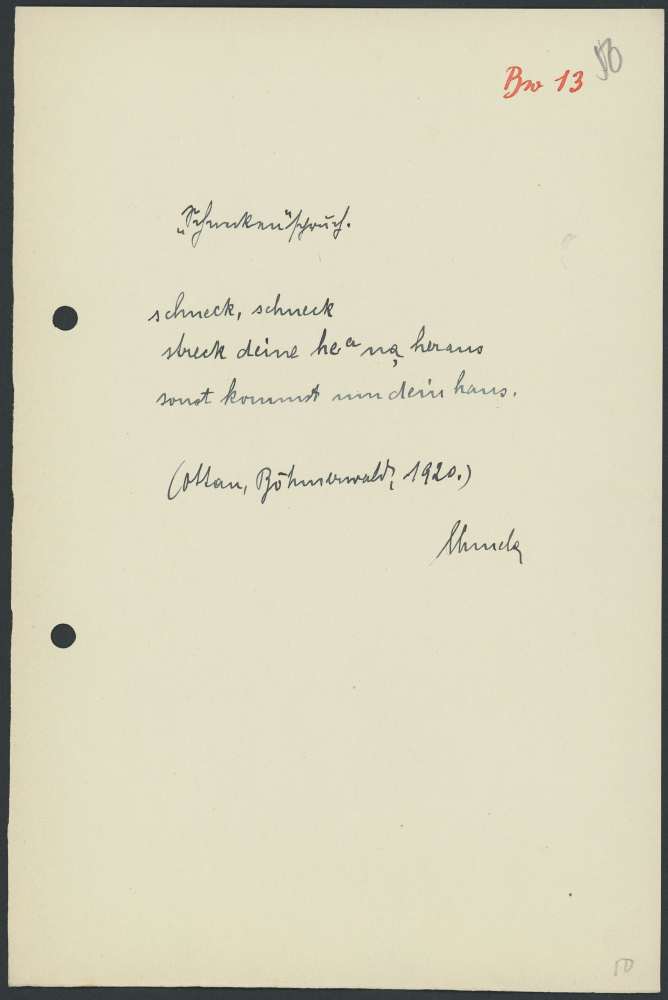 Bw 13
50
„Schnecken“spruch.
schneck, schneck
streck deine heᵃną heraus
sonst kommst um dein haus.
(Ottau, Böhmerwald, 1920.)
50